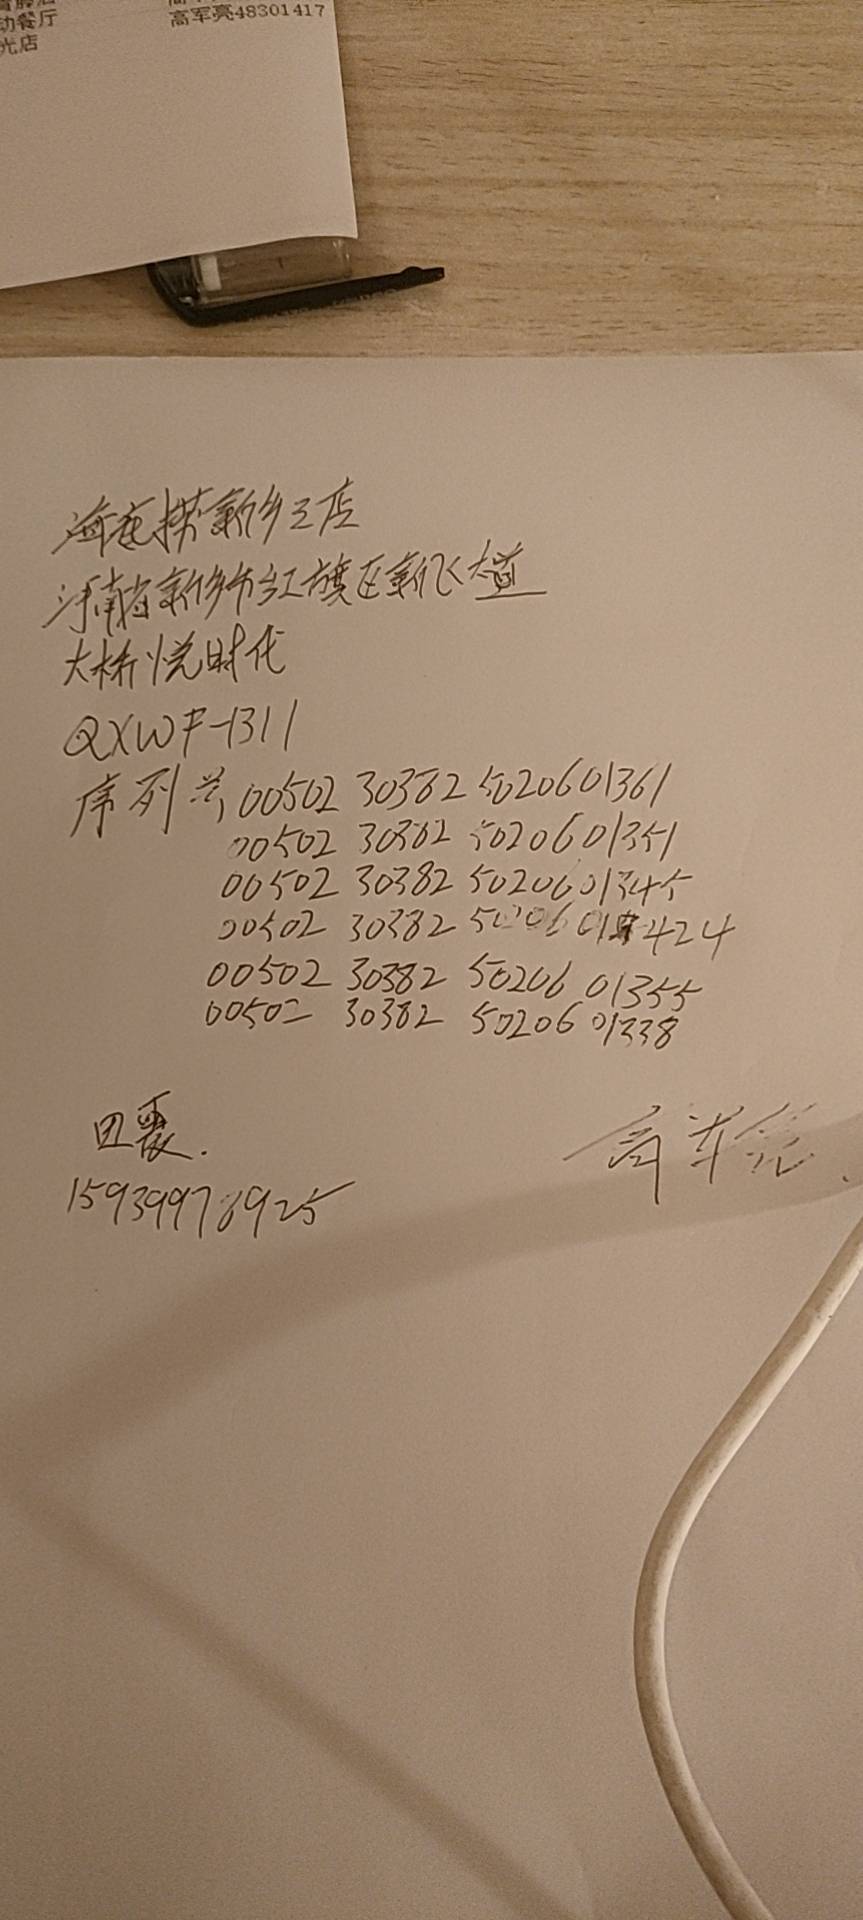 动餐厅
高军亮48301417
光店
海底捞新乡三店
河南省新乡市红旗区新飞大道
大桥悦时代
QXWF-1311
序列号 00502 30382 5020601361
00502 30382 5020601351
00502 30382 5020601345
00502 30382 50206 01424
00502 30382 50206 01355
00502 30382 50206 01338
田震.
高军亮.
15939978925